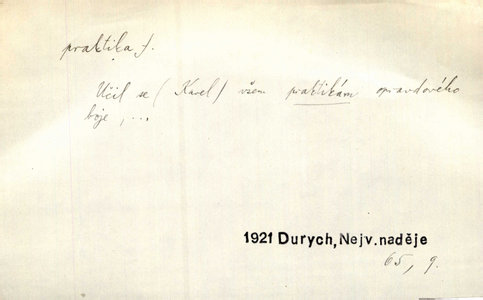 praktika f.
Učil se (Karel) všem praktikám opravdového
boje, ...
1921 Durych, Nejv. naděje
65, 9.